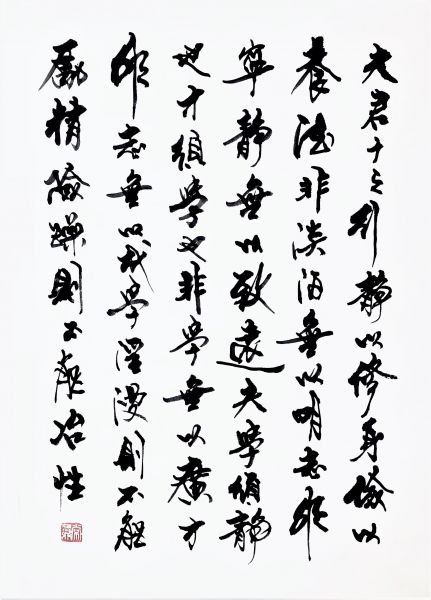 夫君子之行靜以修身儉以
養德非淡泊無以明志非
寧靜無以致遠夫學須靜
也才須學也非學無以廣才
非志無以成學淫漫則不能
勵精險躁則不能冶性